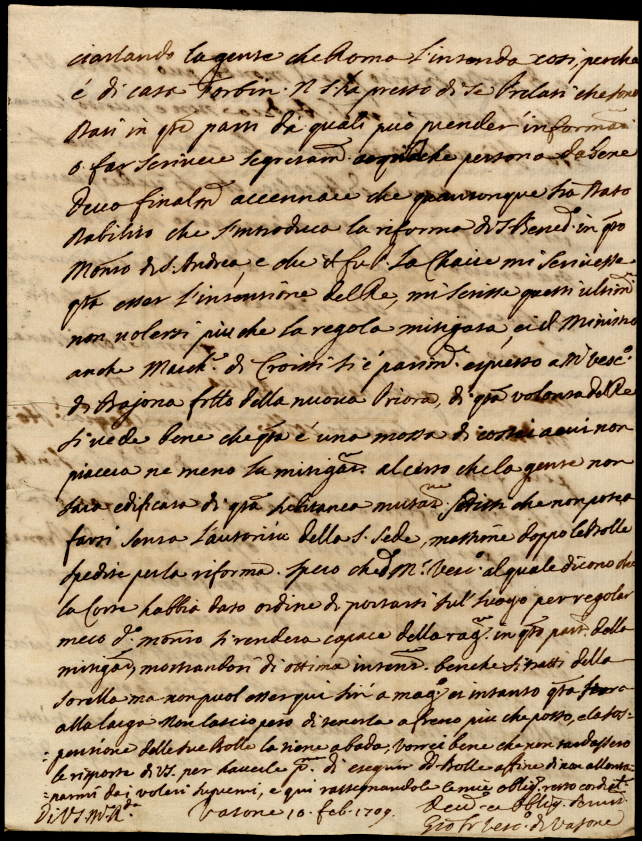 ciarlando la gente che Roma l'intenda cosi, perche
é di casa Forbin. N. S. ha presso di se Prelati che sono
stati in qte parti da quali può prender informa
o far scrivere segretam. che persona da bene
Devo finalm accennare che quantunque sia stato
stabilito che s'introduca la riforma di S. Bened. in qto
Monro di S. Andrea, e che il la Chaize mi scrivesse
qta esser l'intentione del Re, mi scrisse questi ultimi
non volersi più che la regola mitigata, ed il Ministro
anche March. di Croissi si é parim. espresso a Mr Vesc.o
di Bajona frtto della nuova Priora, di qta volonta del Re
si vede bene che qta é una mossa di a cui non
piaccia ne meno la mitigaz. al certo che la gente non
sara edificata di qta mutaz. che non potea
farsi senza l'autorità della S. Sede, massime doppo le Bolle
spedite per la riforma. spero che d. Mr. Vesc.o al quale dicono che
la Corte habbia dato ordine di portarsi sul luogo per regolar
meco d.o monro si rendera capace della rag. in qto part. della
mitigaz, mostrandosi di ottima intenz. benche si tratti della
sorella ma non puol esser qui sin' a mag.o et intanto qta
alla larga Non lascio pero di tenerla a freno più che posso, e la sos-
-pensione delle sue Bolle la tiene a bada; vorrei bene che non tardassero
le risposte di VS. per haverle pa. di eseguir d. Bolle affine di non allonta-
-narmi dai voleri supremi, e qui rassegnandole le mie oblig. resto
Di VS. M. Rda Vasone 10. Feb. 1709. Dev. et Oblig.
Gio fr Vesc.o di Vasone